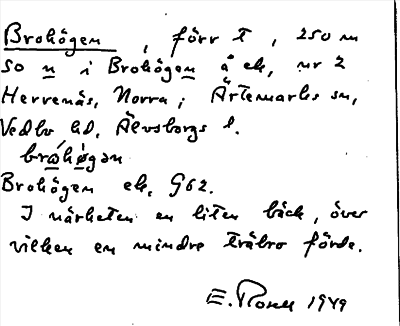 Brohögen, förr t, 250 m
so n i Brohögen å ek, nr 2
Herrenäs, Norra; Ärtemarks sn,
Vedbo hd, Älvsborgs l.
brøhøgən
Brohögen ek, G62.
I närheten en liten bäck, över
vilken en mindre träbro förde.
E. 1949